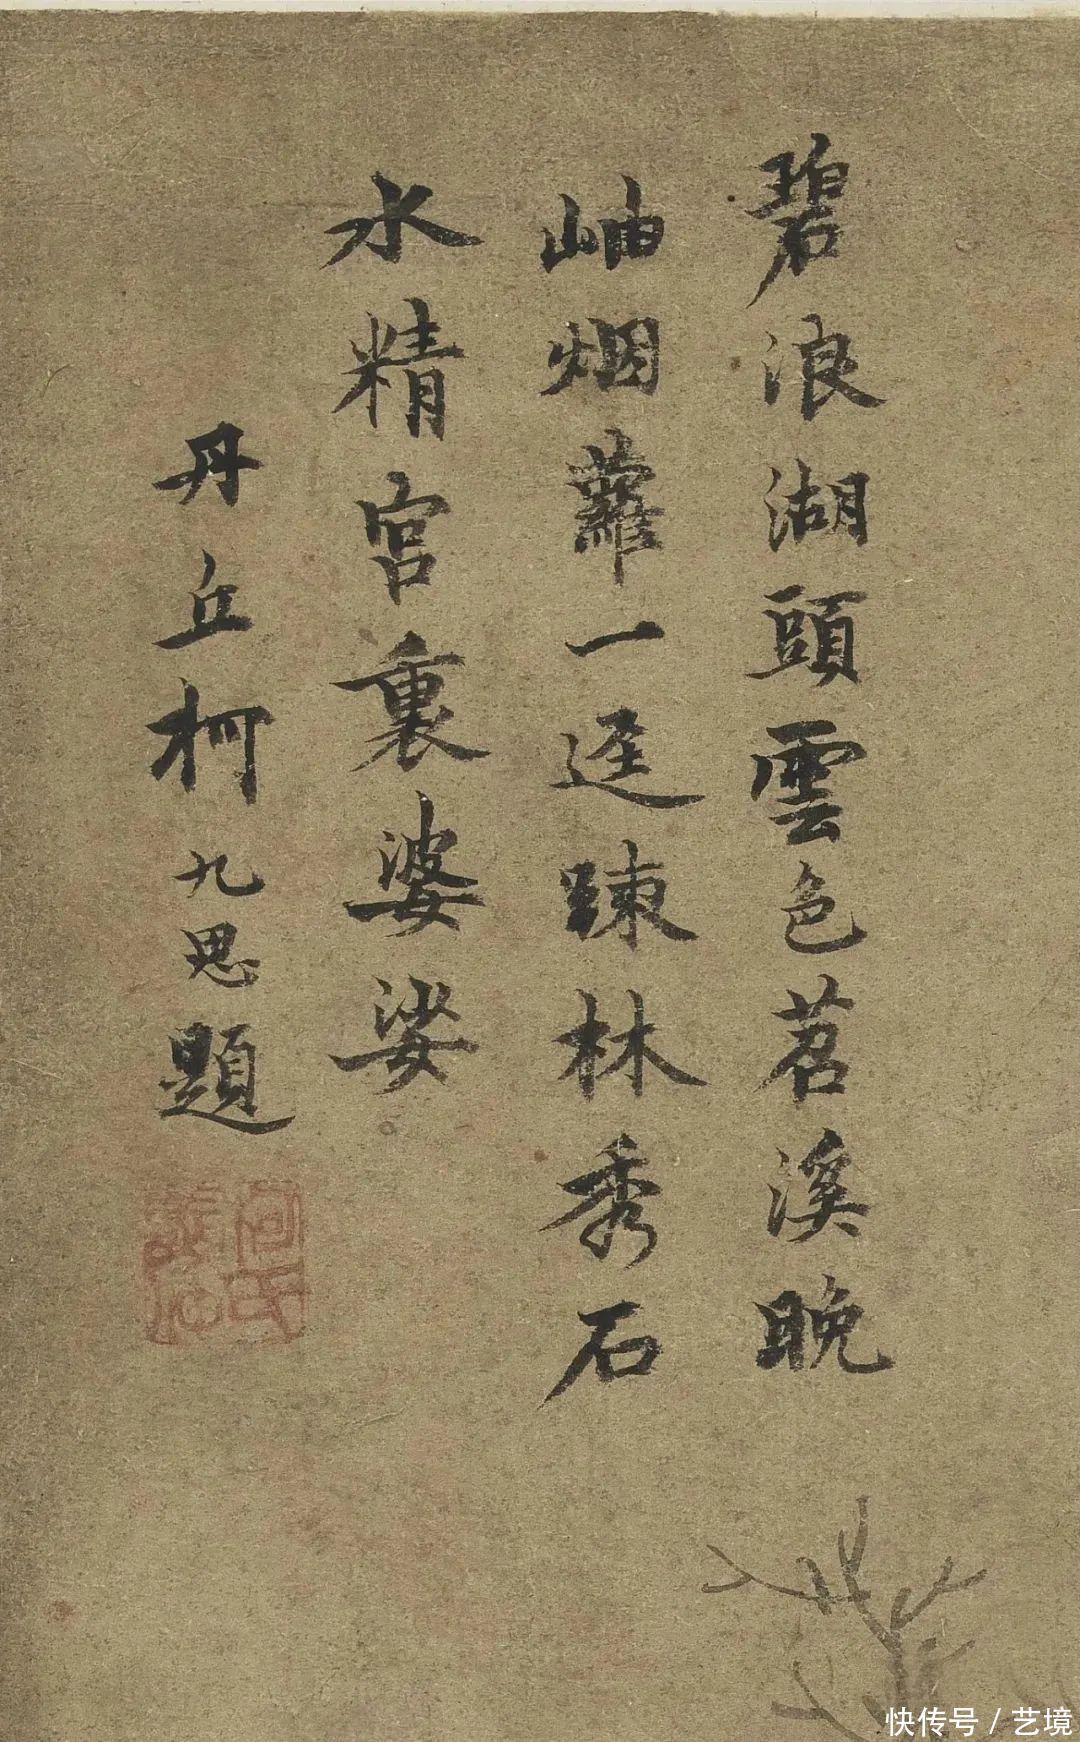 碧浪湖頭雲色苕溪晚
岫烟蘿一逕踈林秀石
水精宮裏婆娑
丹丘柯九思題
快传号 / 艺境